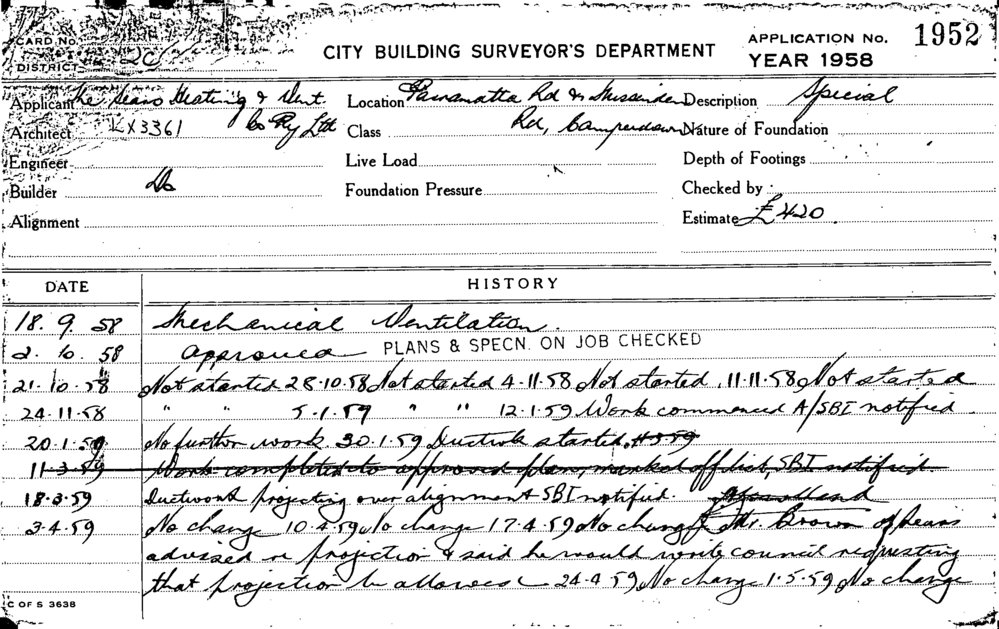 CARD NO.
DISTRICT 20
CITY BUILDING SURVEYOR'S DEPARTMENT
APPLICATION No. 1952
YEAR 1958
Applicant The Sears Heating & Vent. Location Parramatta Rd & Missenden Description Special
Architect LX3361 Co Pty Ltd Class Rd, Camperdown Nature of Foundation
Engineer Live Load Depth of Footings
Builder Do Foundation Pressure Checked by
Alignment Estimate £420.
DATE HISTORY
18. 9. 58 Mechanical Ventilation.
2. 10. 58 Approved PLANS & SPECN. ON JOB CHECKED
21. 10. 58 Not started 28.10.58 Not started 4.11.58 Not started 11.11.58 Not started
24.11.58 " " 5.1.59 " " 12.1.59 Work commenced A/SBI notified
20.1.59 No further work. 30.1.59 Ductwk started.
11.3.59 Work completed to approved plan, marked off dict, SBI notified.
18.3.59 Ductwork projecting over alignment SBI notified.
3.4.59 No change 10.4.59 No change 17.4.59 No change Mr. Brown of Sears
advised re projection & said he would write council requesting
that projection be allowed 24.4.59 No change 1.5.59 No change
C OF S 3638